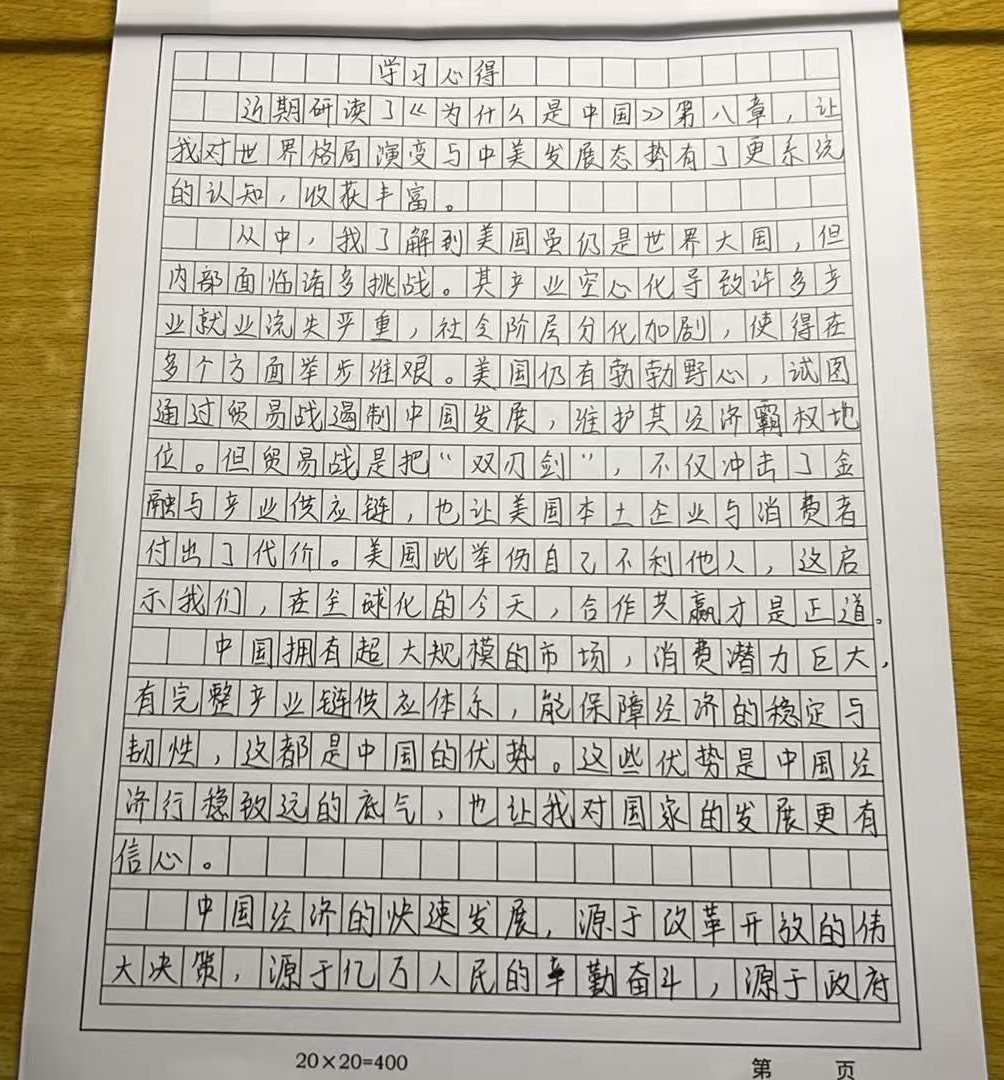 学习心得
近期研读了《为什么是中国》第八章，让
我对世界格局演变与中美发展态势有了更系统
的认知，收获丰富。
从中，我了解到美国虽仍是世界大国，但
内部面临诸多挑战。其产业空心化导致许多产
业就业流失严重，社会阶层分化加剧，使得在
多个方面举步维艰。美国仍有勃勃野心，试图
通过贸易战遏制中国发展，维护其经济霸权地
位。但贸易战是把“双刃剑”，不仅冲击了金
融与产业供应链，也让美国本土企业与消费者
付出了代价。美国此举伤自己不利他人，这启
示我们，在全球化的今天，合作共赢才是正道。
中国拥有超大规模的市场，消费潜力巨大，
有完整产业链供应体系，能保障经济的稳定与
韧性，这都是中国的优势。这些优势是中国经
济行稳致远的底气，也让我对国家的发展更有
信心。
中国经济的快速发展，源于改革开放的伟
大决策，源于亿万人民的辛勤奋斗，源于政府
20×20=400
第 页